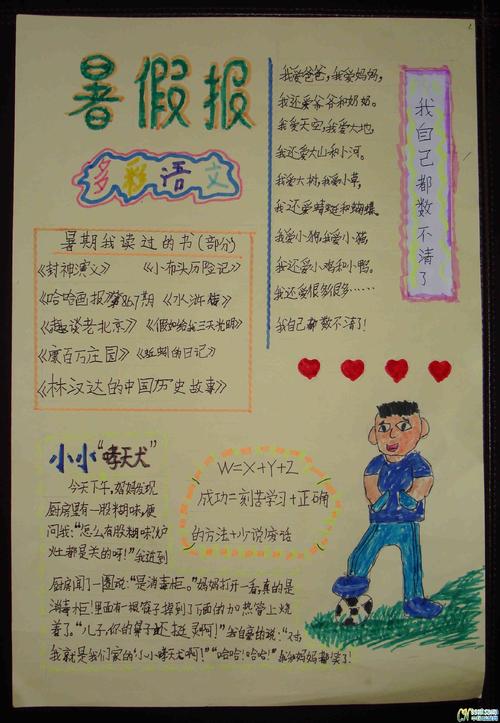 暑假报
多彩语文
暑期我读过的书(部分)
《封神演义》 《小布头历险记》
《哈哈画报第867期 《水浒传》
《趣谈老北京》 《假如给我三天光明》
《康百万庄园》 《蚯蚓的日记》
《林汉达的中国历史故事》
我爱爸爸,我爱妈妈,
我还爱爷爷和奶奶。
我爱天空,我爱大地,
我还爱大山和小河。
我爱大树,我爱小草,
我还爱蜻蜓和蝴蝶。
我爱小狗,我爱小猫
我还爱小鸡和小鸭。
我还爱很多很多……
我自己都数不清了!
我自己都数不清了
小小“哮天犬”
今天下午,妈妈发现
厨房里有一股糊味,便
问我:“怎么有股糊味?炉
灶都是关的呀!”我跑到
厨房闻了一圈说:“是消毒柜。”妈妈打开一看,真的是
消毒柜!里面有根筷子掉到了下面的加热管上烧
着了。“儿子,你的鼻子还挺灵啊!”我自豪的说:“
我就是我们家的‘小小哮天犬啊!”“哈哈!哈哈!”我和妈妈都笑了!
W=X+Y+Z
成功=刻苦学习+正确
的方法+少说废话